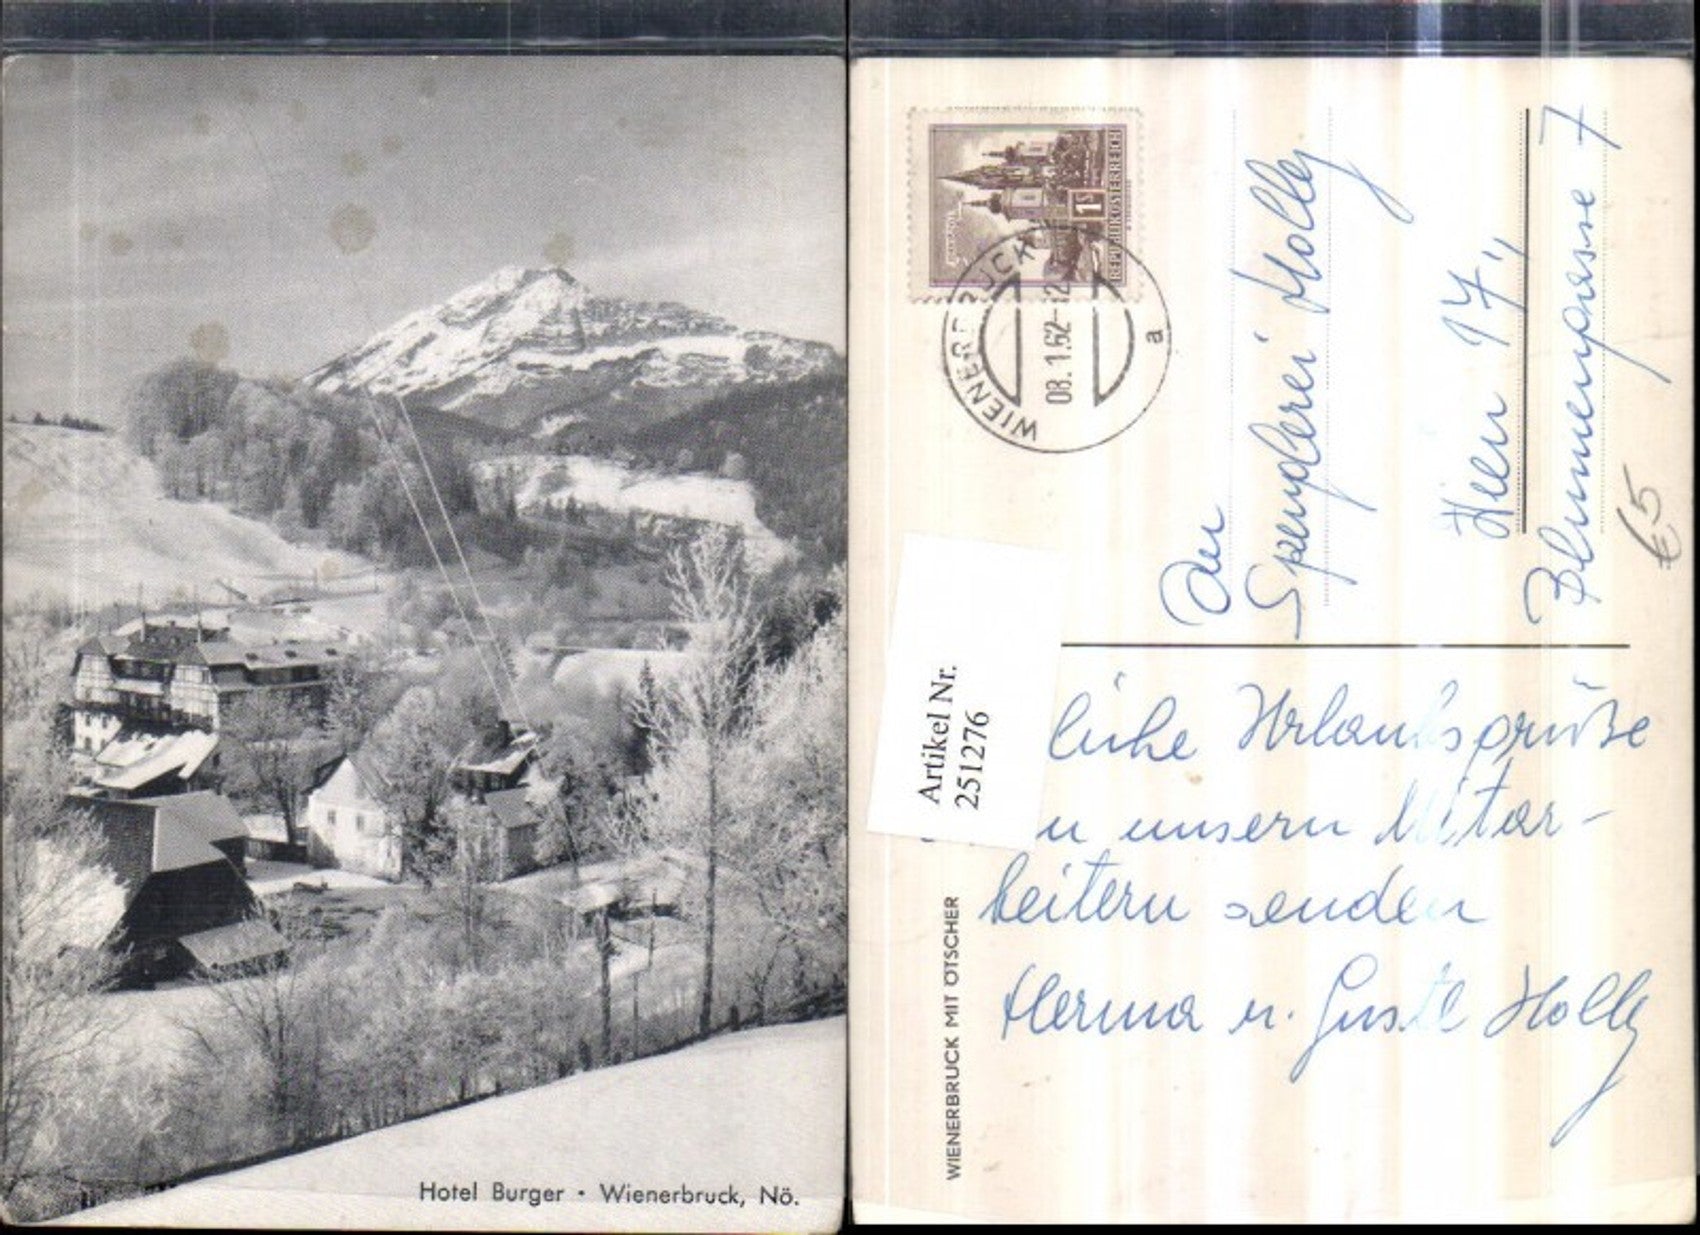 Hotel Burger • Wienerbruck, Nö.
1S
REPUBLIK ÖSTERREICH
WIENERBRUCK
08.1.62-12
a
An
Spenglerei Holly
Wien 17,,
Blumengasse 7
€5
Artikel Nr.
251276
liche Urlaubsgrüße
n unsern Mitar-
beitern senden
Herma u. Gustl Holly
WIENERBRUCK MIT ÖTSCHER